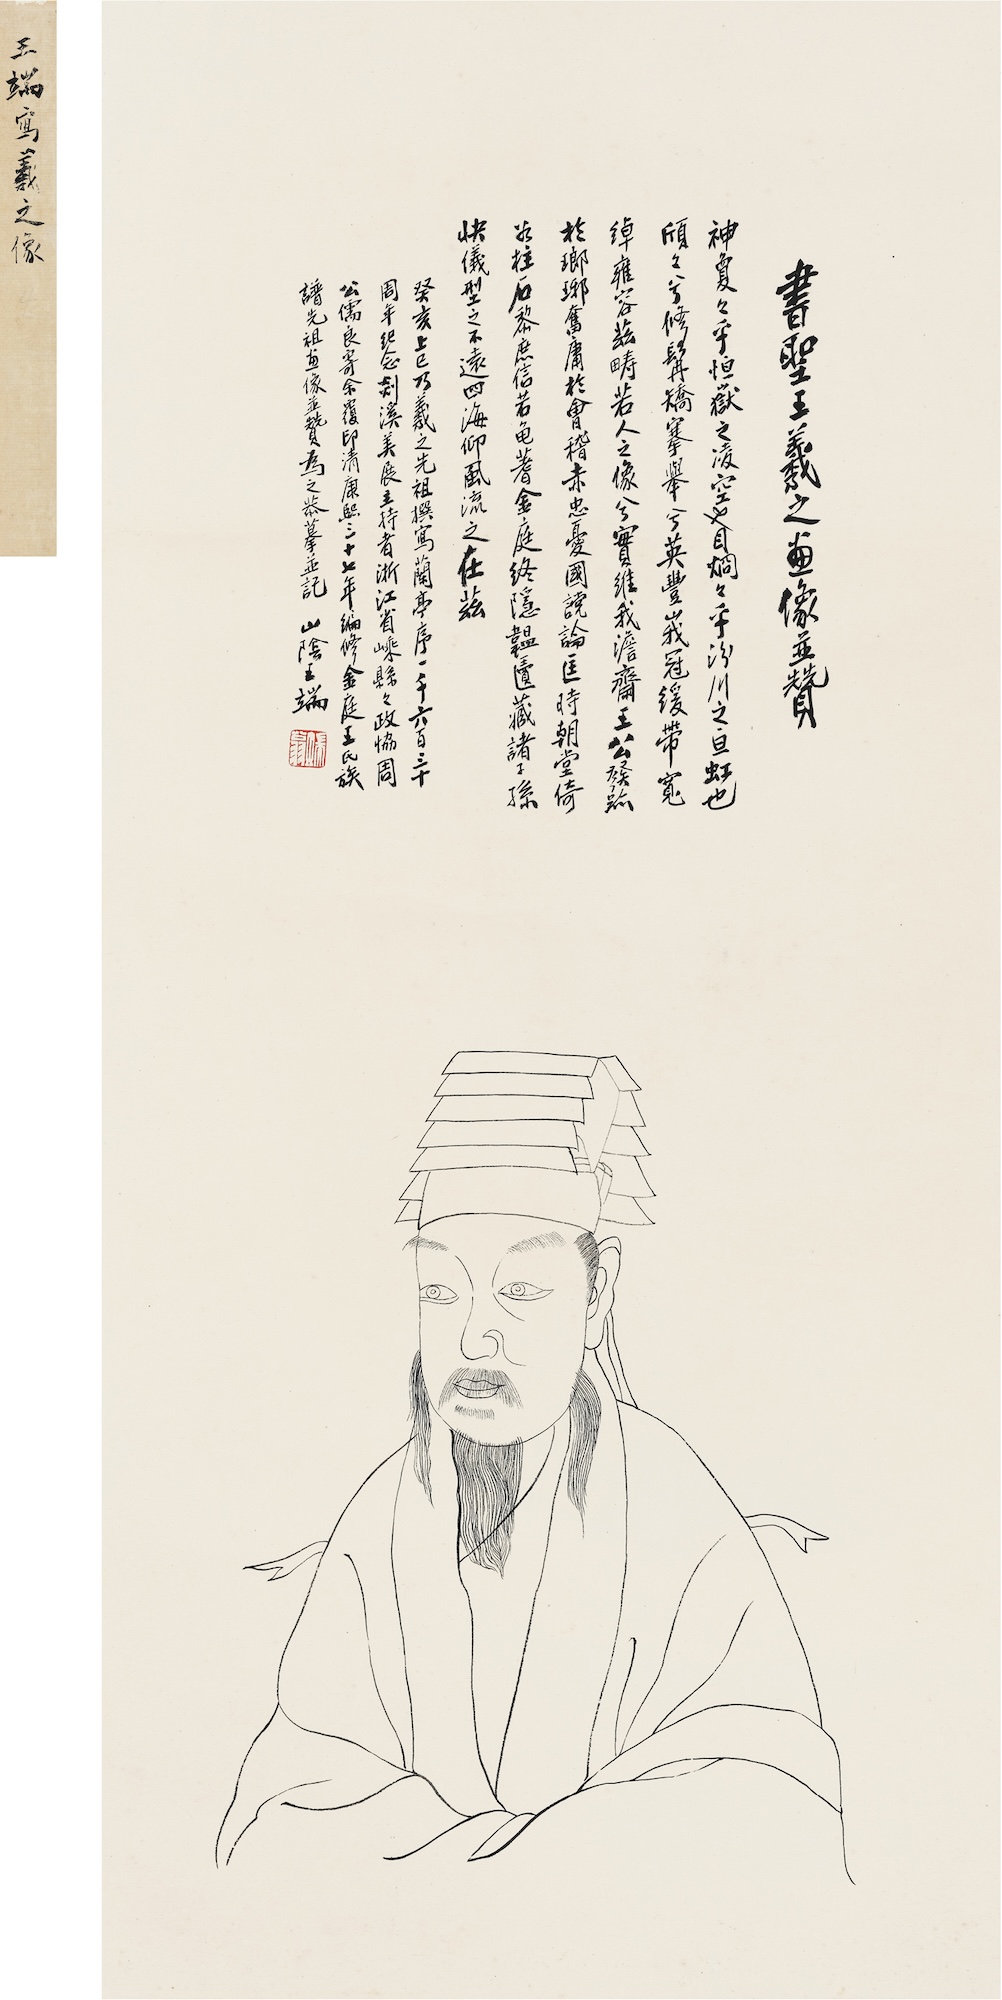 王端寫羲之像
書聖王羲之畫像並贊
神敻々乎恒嶽之淩空目烱々乎汾川之亘虹也
頎々兮修髯矯搴舉兮英豐峩冠緩帶寬
綽雍容茲疇若人之像兮實維我澹齋王公發跡
於瑯琊奮庸於會稽赤忠憂國讜論匡時朝堂倚
若柱石黎庶信若龟蓍金庭終隱韞匵藏諸子孫
快儀型之不遠四海仰風流之在茲
癸亥上巳乃羲之先祖撰寫蘭亭序一千六百三十
周年紀念剡溪美展主持者浙江省嵊縣々政協周
公儒良寄余覆印清康熙三十七年編修金庭王氏族
譜先祖画像並贊為之恭摹並記 山陰王端